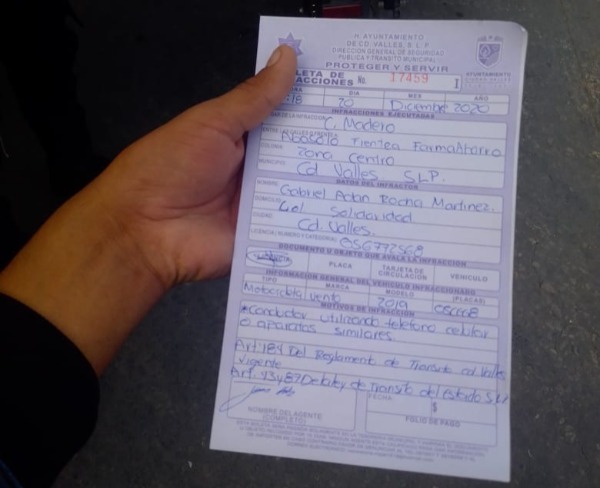 H. AYUNTAMIENTO
DE CD. VALLES, S.L.P.
DIRECCIÓN GENERAL DE SEGURIDAD
PÚBLICA Y TRÁNSITO MUNICIPAL
PROTEGER Y SERVIR
AYUNTAMIENTO
LETA DE No. 17459 I
ACCIONES
DIA MES AÑO
20 Diciembre 2020
INFRACCIONES EJECUTADAS
C. Madero
Abasolo Frentea FarmaAhorro
COLONIA Zona Centro
MUNICIPIO Cd Valles S.L.P.
DATOS DEL INFRACTOR
NOMBRE Gabriel Adan Rocha Martinez.
DOMICILIO Col Solidaridad
CIUDAD Cd. Valles.
LICENCIA (NUMERO Y CATEGORIA)
DOCUMENTO U OBJETO QUE AVALA LA INFRACCIÓN
LICENCIA PLACA TARJETA DE CIRCULACIÓN VEHICULO
INFORMACIÓN GENERAL DEL VEHÍCULO INFRACCIONADO
TIPO MARCA MODELO (PLACAS)
Motocicleta Vento 2019
MOTIVOS DE INFRACCIÓN
*Conductor utilizando telefono celular
o aparatos similares.
Art. 184 Del Reglamento de Transito cd. Valles
vigente
Art. 43 y 87 De la Ley de Transito del Estado S.L.P
NOMBRE DEL AGENTE
(COMPLETO)
FECHA:
$
FOLIO DE PAGO